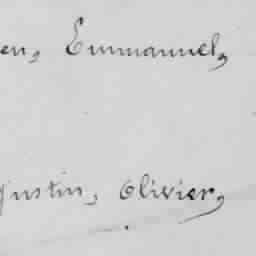 en, Emmanuel,
Justin, Olivier,